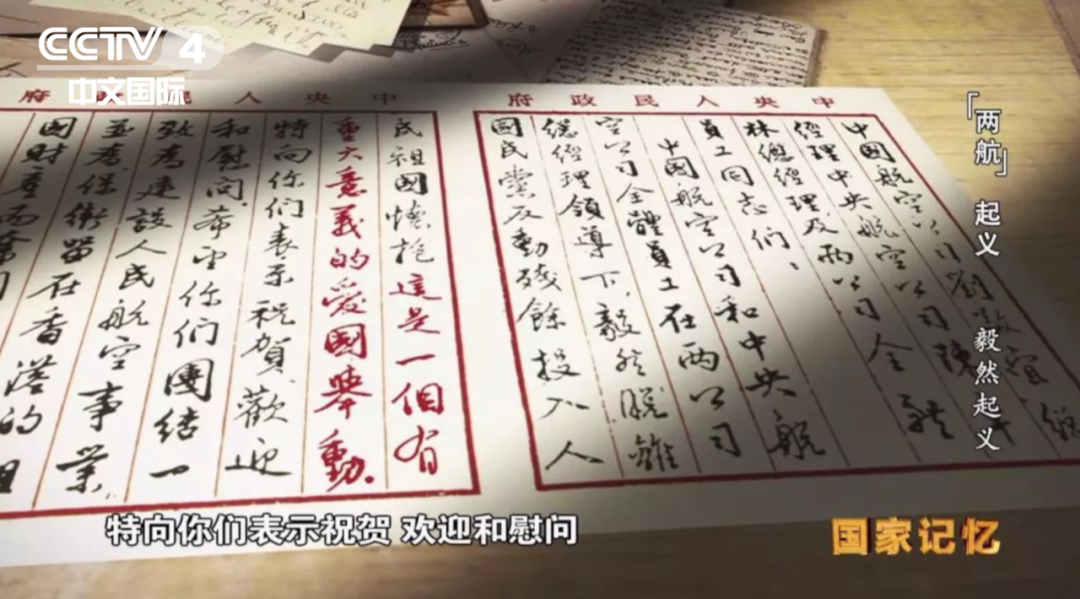 CCTV 4
中文国际
「两航」起义 毅然起义
中央人民政府
中國航空公司劉敬宜總
經理中央航空公司陳卓
林總經理及兩公司全體
員工同志們：
中國航空公司和中央航
空公司全體員工在兩公司
總經理領導下，毅然脫離
國民黨反動殘餘投入人
中央人民政府
民祖國懷抱這是一個有
重大意義的愛國舉動。
特向你們表示祝賀、歡迎
和慰問。希望你們團結一
致為建設人民航空事業
並為保衛留在香港的祖
國財產而奮鬥
特向你们表示祝贺 欢迎和慰问
国家记忆